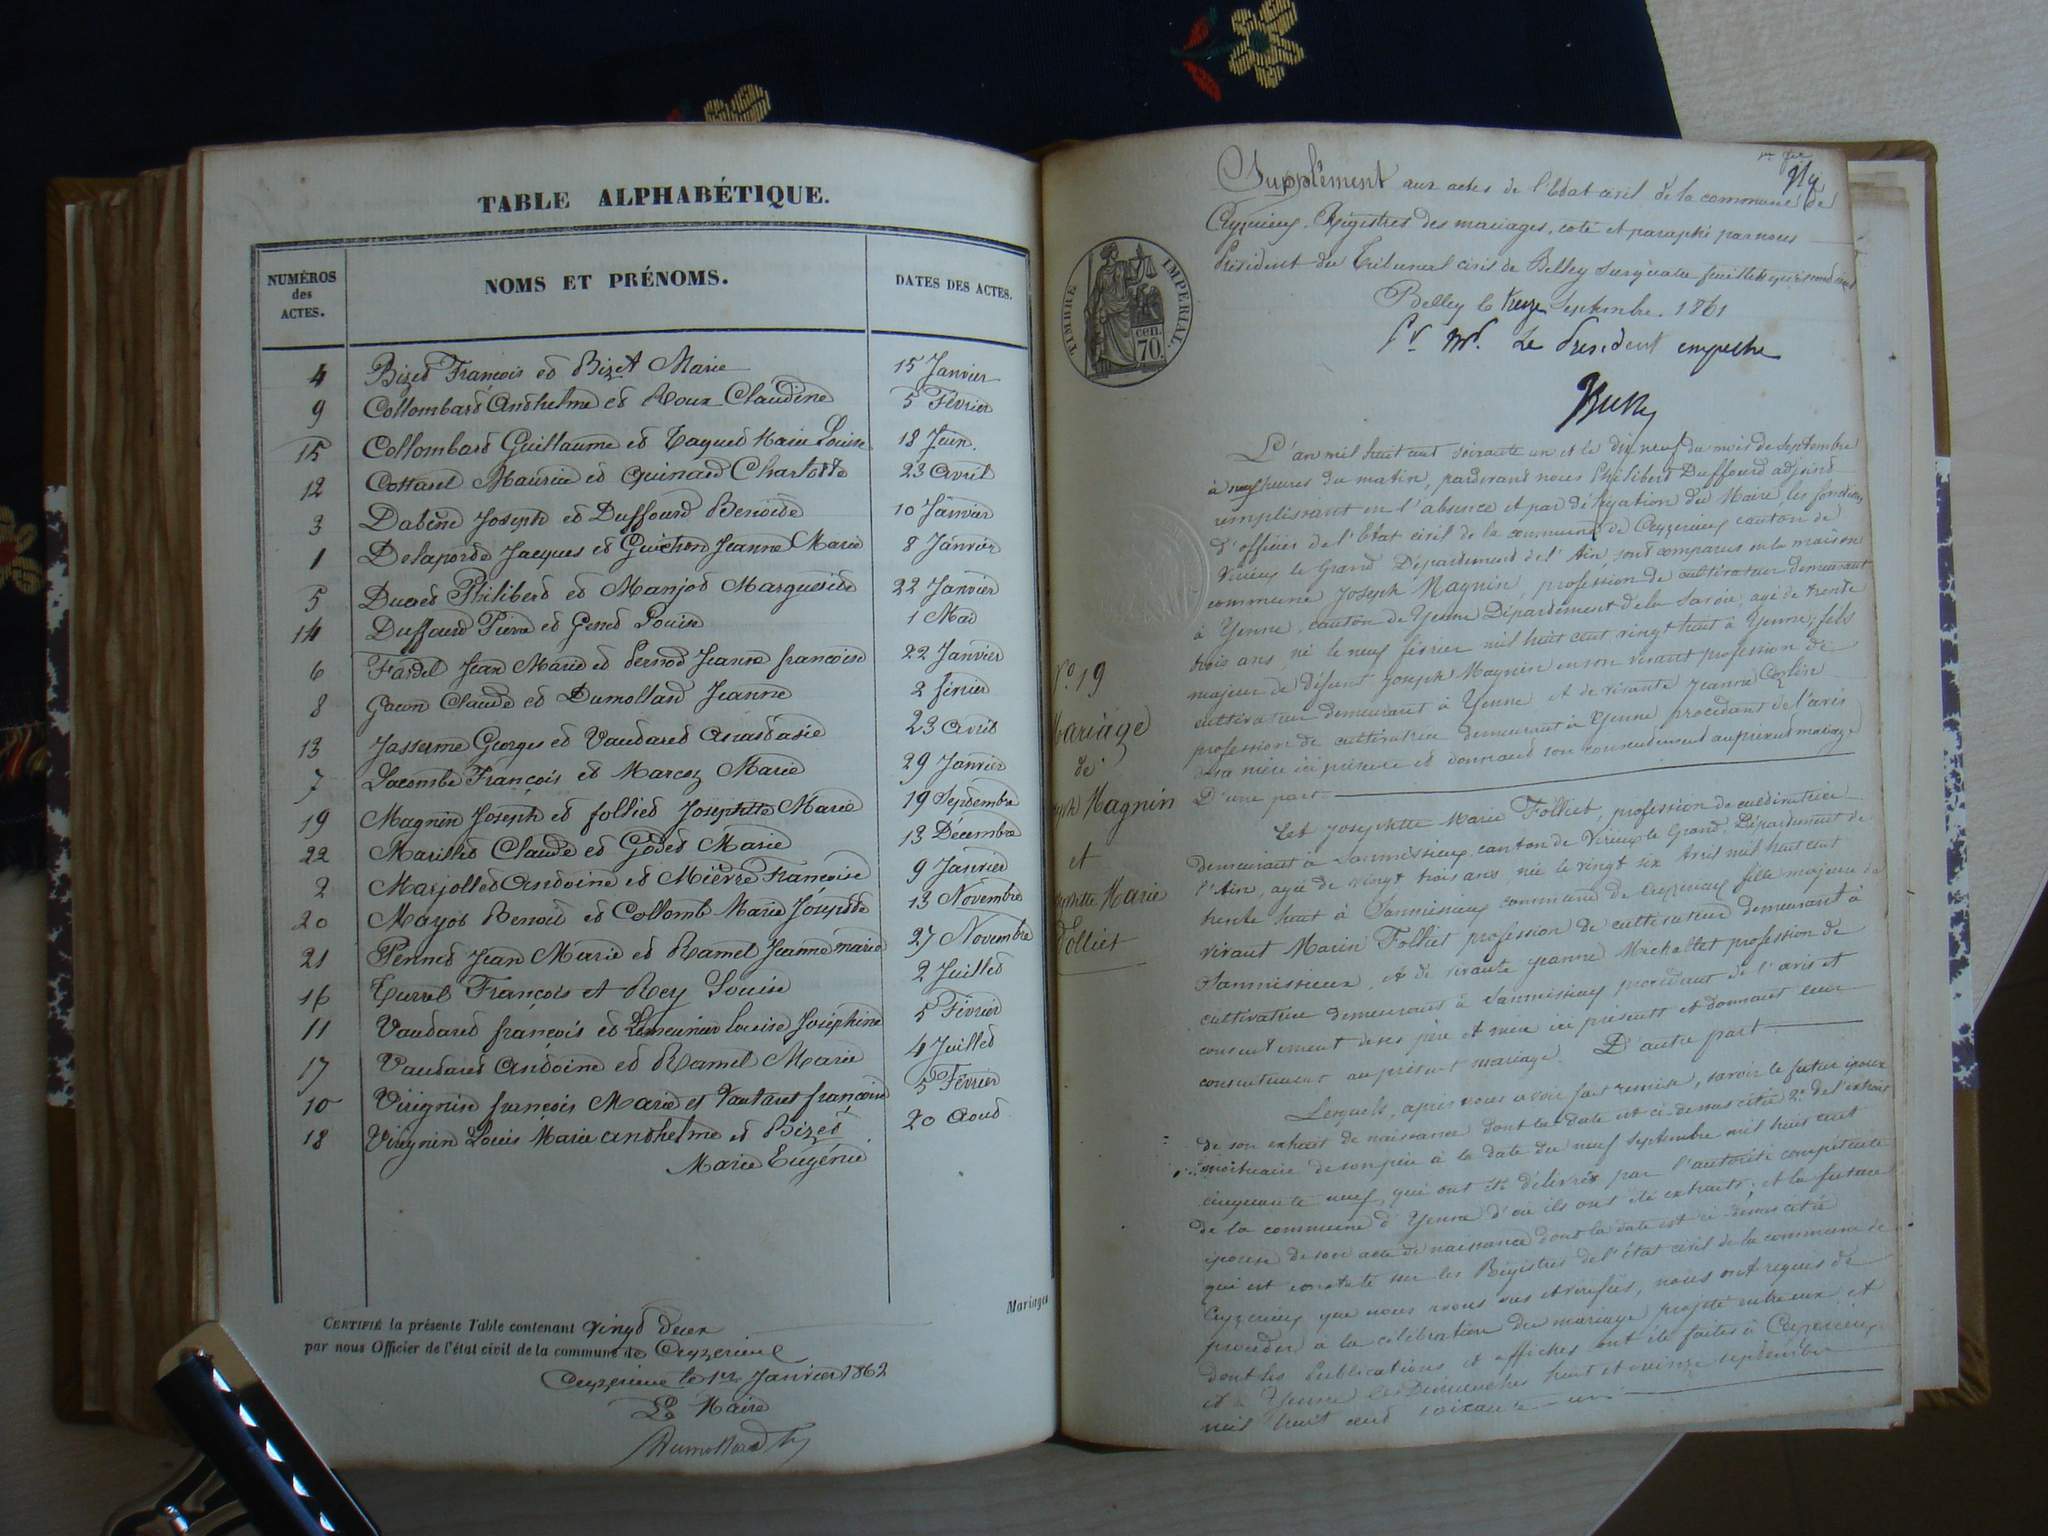 TABLE ALPHABÉTIQUE.
NUMÉROS des ACTES. NOMS ET PRÉNOMS. DATES DES ACTES.
4 Bizet François et Bizet Marie 15 Janvier
9 Collombard Anthelme et Roux Claudine 5 Février
15 Collombard Guillaume et Marie Louise 18 Juin
12 Maurice et Quinard Charlotte 23 Avril
3 Joseph et Duffourd Benoite 10 Janvier
1 Delaporte Jacques et Guichon Jeanne Marie 8 Janvier
5 Philibert et Manjot Marguerite 22 Janvier
14 Duffourd Pierre et Genet Louise 1 Mai
6 Fardel Jean Marie et Pernod Jeanne françoise 22 Janvier
8 Gacon Claude et Dumollard Jeanne 2 février
13 Jasserme Georges et Vaudaret Anastasie 23 Avril
7 Lacombe François et Marcoz Marie 29 Janvier
19 Magnin Joseph et folliet Josephtte Marie 19 Septembre
22 Marillet Claude et Godet Marie 13 Décembre
2 Marjollet Antoine et Mièvre Françoise 9 Janvier
20 Mayot Benoit et Collomb Marie Josephte 13 Novembre
21 Pennet Jean Marie et Ramel Jeanne marie 27 Novembre
16 Turrel François et Rey Louise 2 Juillet
11 Vaudaret françois et Lemeunier Louise Joséphine 5 Février
17 Vaudaret Antoine et Ramel Marie 4 Juillet
10 Virignin françois Marie et Vautaret françoise 5 Février
18 Virignin Louis Marie Anthelme et Bizet 20 Aout
Marie Eugénie
Mariages
CERTIFIÉ la présente Table contenant vingt deux
par nous Officier de l'état civil de la commune de Ceyzerieux
Ceyzerieux le 1er Janvier 1862
Le Maire
Dumollard
Supplément aux actes de l'Etat civil de la commune de
Ceyzerieux. Registres des mariages, coté et paraphé par nous
Président du Tribunal civil de Belley sur quatre feuillets
Belley le treize Septembre 1861
Pr Mr. Le President empeche
TIMBRE IMPÉRIAL
70 cen.
L'an mil huit cent soixante un et le dix neuf du mois de Septembre
à neuf heures du matin, pardevant nous Philibert Duffourd adjoint
remplissant en l'absence et par délégation du Maire les fonctions
d'officier de l'état civil de la commune de Ceyzerieux canton de
Virieu le Grand Département de l'Ain, sont comparus en la maison
commune Joseph Magnin, profession de cultivateur demeurant
à Yenne, canton de Yenne Département de la Savoie, agé de trente
trois ans, né le neuf février mil huit cent vingt huit à Yenne, fils
majeur de défunt Joseph Magnin en son vivant profession de
cultivateur demeurant à Yenne et de vivante Jeanne
profession de cultivatrice demeurant à Yenne procédant de l'avis
de sa mère ici présente et donnant son consentement au présent mariage
D'une part
Et Josephtte Marie Folliet, profession de cultivatrice
demeurant à Sanmissieux canton de Virieu le Grand, Département de
l'Ain, agée de vingt trois ans, née le vingt six Avril mil huit cent
trente huit à Sanmissieux commune de Ceyzerieux fille majeure de
vivant Marin Folliet profession de cultivateur demeurant à
Sanmissieux, et de vivante Jeanne Michallet profession de
cultivatrice demeurant à Sanmissieux procédant de l'avis et
consentement de ses père et mère ici présents et donnant leur
consentement au présent mariage. D'autre part
Lesquels, après nous avoir fait remise, savoir le futur époux
de son extrait de naissance dont la date est ci-dessus citée 2° de l'extrait
mortuaire de son père à la date du neuf Septembre mil huit cent
cinquante neuf, qui ont été délivrés par l'autorité compétente
de la commune d'Yenne d'où ils ont été extraits; et la future
épouse de son acte de naissance dont la date est ci-dessus citée
qui est constaté sur les Registres de l'état civil de la commune de
Ceyzerieux que nous avons vus et vérifiés, nous ont requis de
procéder à la célébration du mariage projeté entre eux et
dont les publications et affiches ont été faites à Ceyzerieux
et à Yenne les Dimanches huit et quinze septembre
mil huit cent soixante-un
N° 19
Mariage
de
Joseph Magnin
et
Josephtte Marie
Folliet